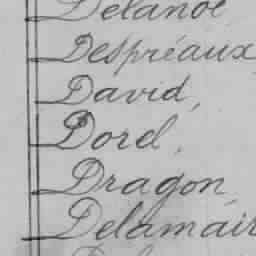 Delanoë
Despréaux
David,
Dorel,
Dragon,
Delamair